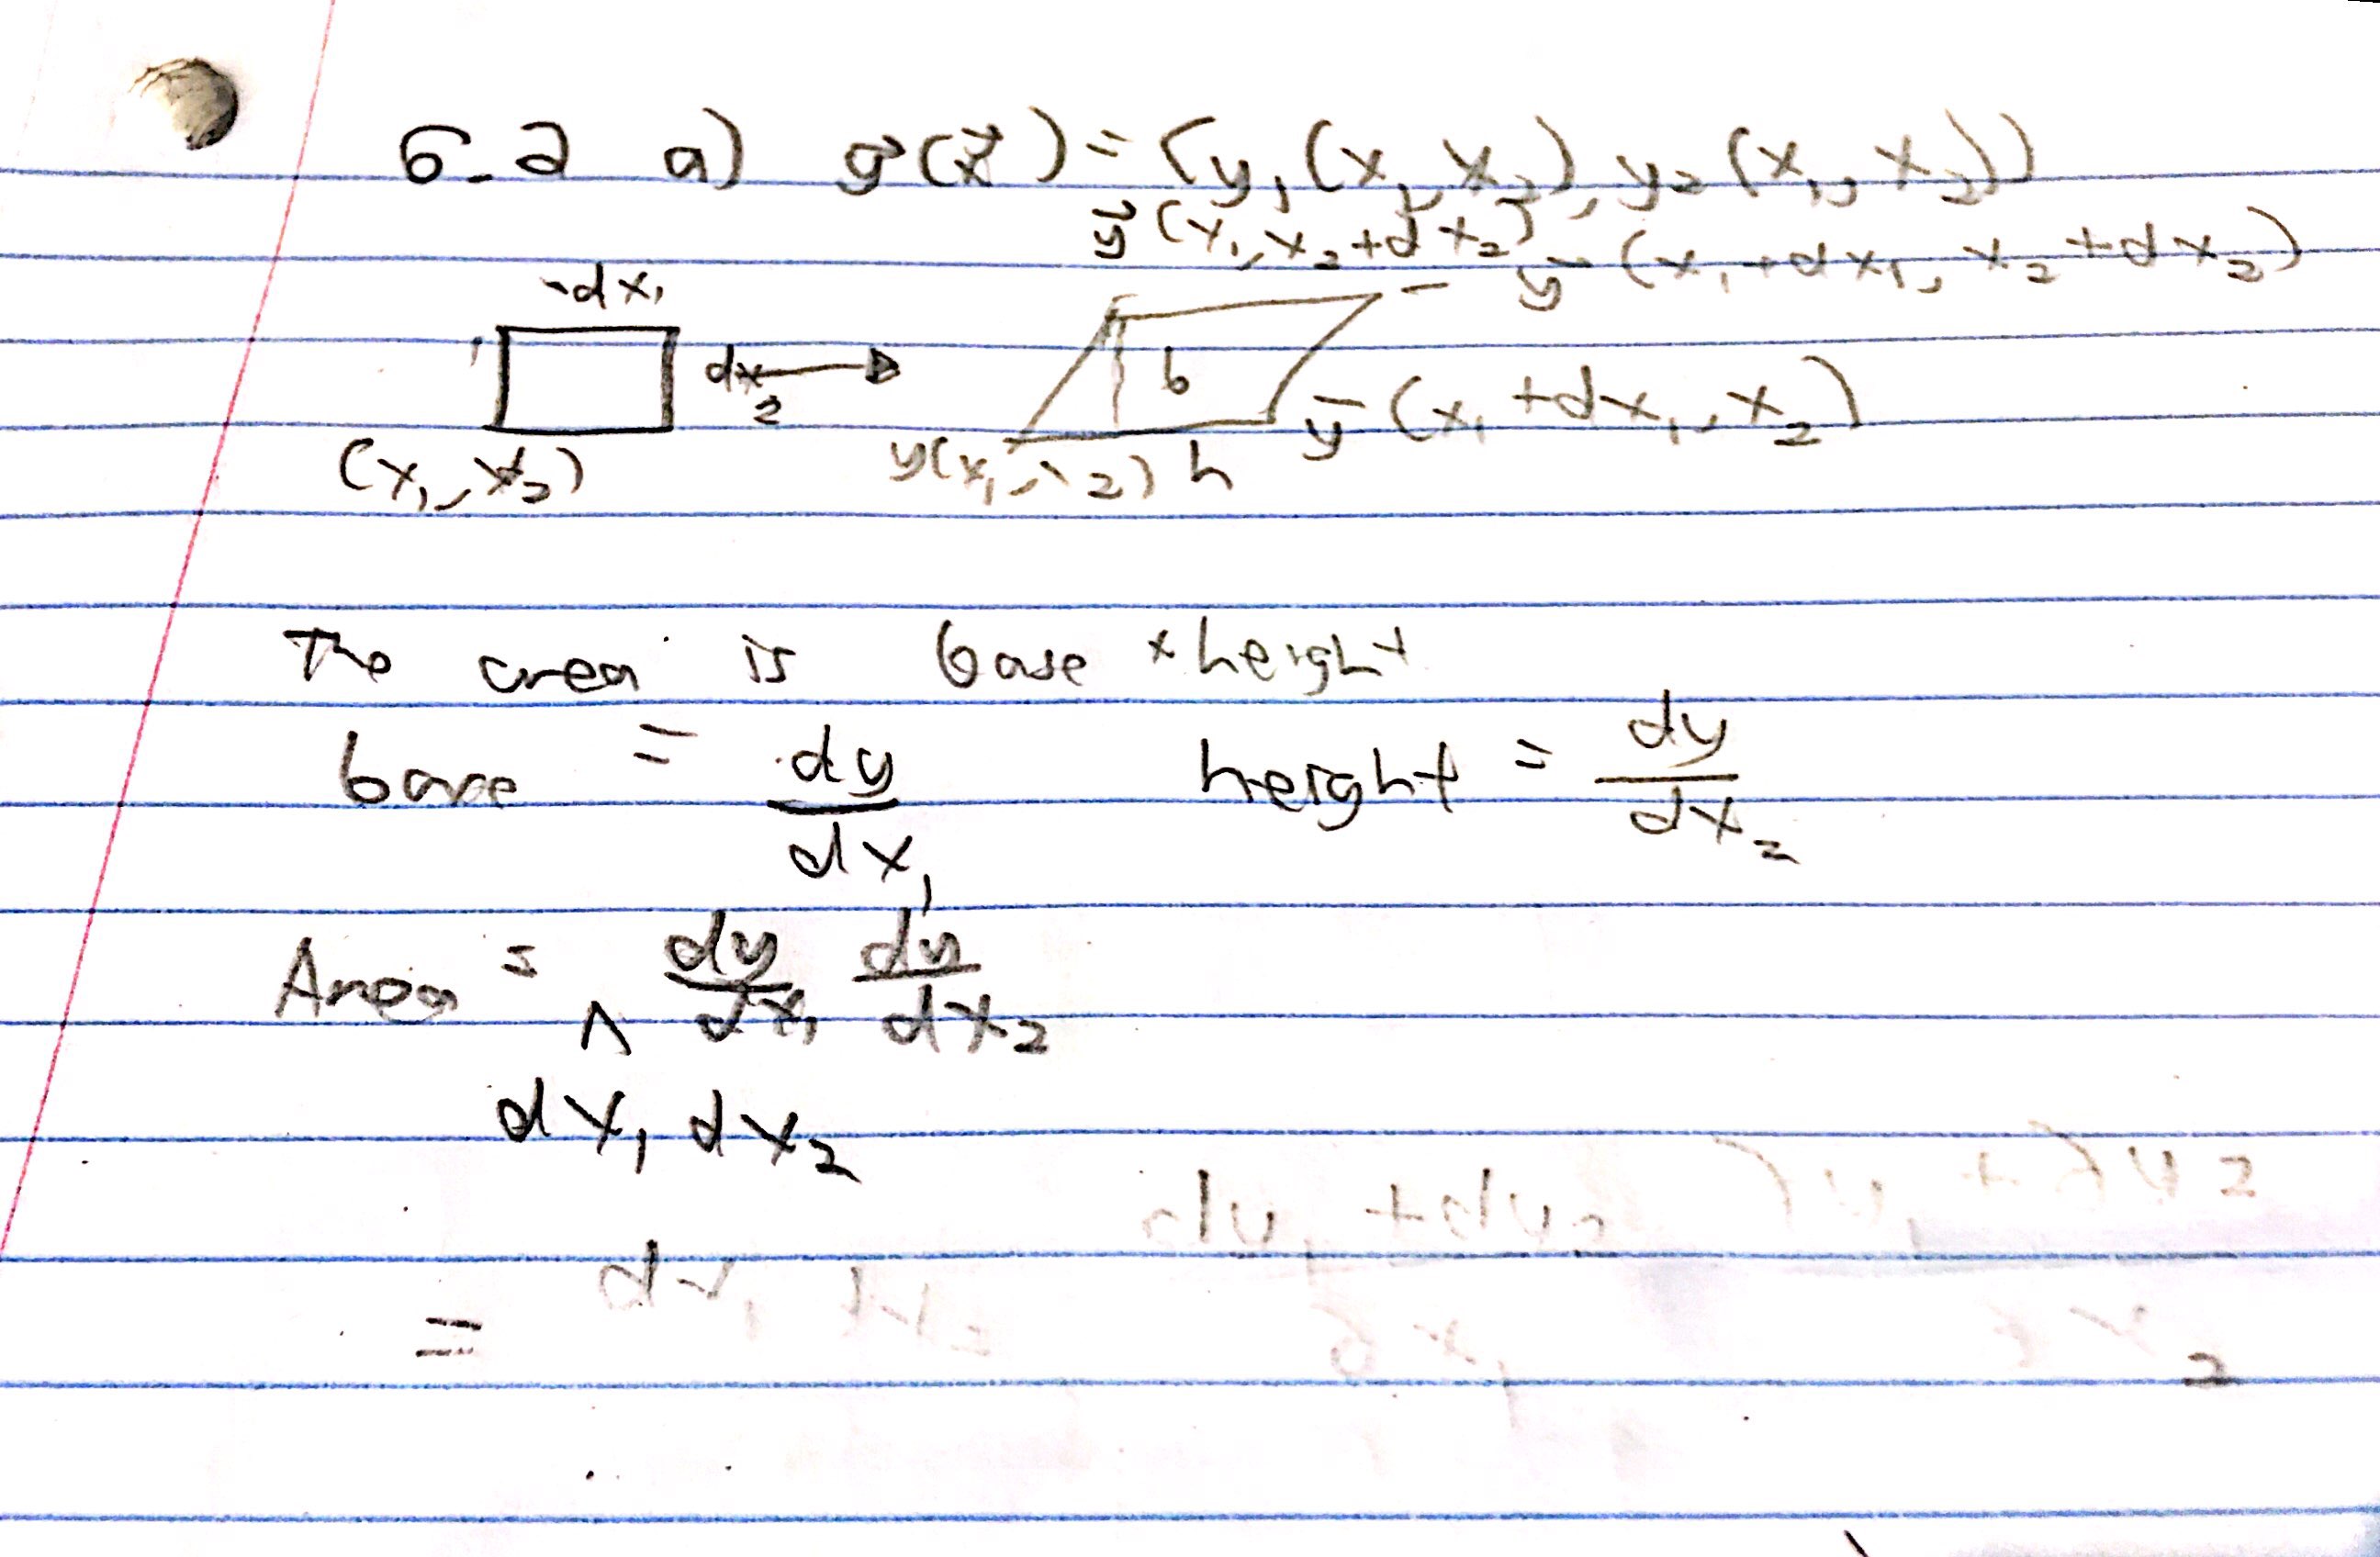 6.2 a) y⃗(x⃗) = (y₁(x₁, x₂), y₂(x₁, x₂))
y⃗(x₁, x₂+dx₂)
y⃗(x₁+dx₁, x₂+dx₂)
dx₁
dx₂
b
y⃗(x₁+dx₁, x₂)
(x₁, x₂)
y(x₁, x₂) h
The area is base × height
base = dy/dx₁ height = dy/dx₂
Area = ∧ dy/dx₁ dy/dx₂
dx₁ dx₂
dy₁ + dy₂
=